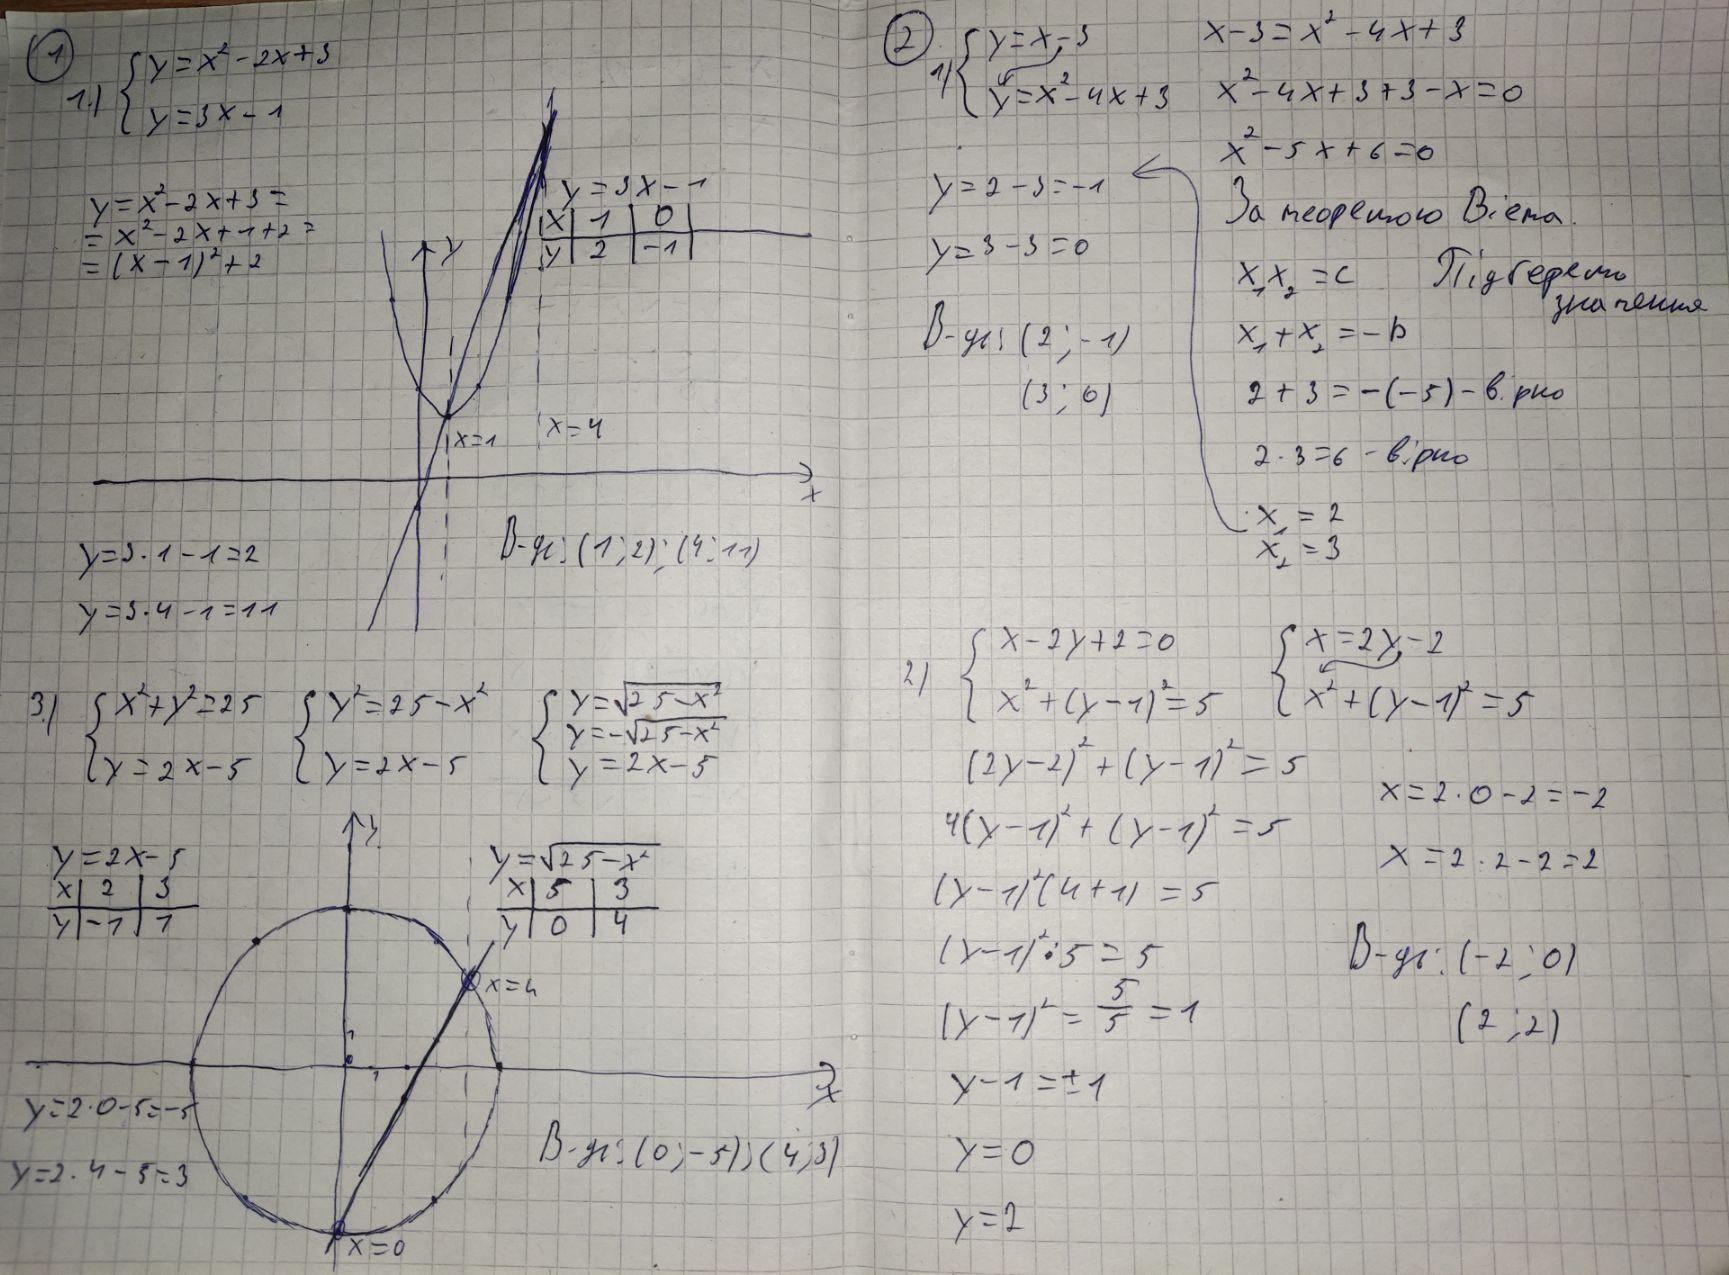 1
1.) { y = x² - 2x + 3
y = 3x - 1
y = x² - 2x + 3 =
= x² - 2x + 1 + 2 =
= (x - 1)² + 2
y = 3x - 1
x | 1 | 0
y | 2 | -1
y
x = 1
x = 4
x
y = 3·1 - 1 = 2
y = 3·4 - 1 = 11
В-дь: (1; 2); (4; 11)
3.) { x² + y² = 25
y = 2x - 5
{ y² = 25 - x²
y = 2x - 5
{ y = √25 - x²
y = -√25 - x²
y = 2x - 5
y = 2x - 5
x | 2 | 3
y | -1 | 1
y
y = √25 - x²
x | 5 | 3
y | 0 | 4
x = 4
1
0
1
x
y = 2·0 - 5 = -5
y = 2·4 - 5 = 3
В-дь: (0; -5); (4; 3)
x = 0
2
1) { y = x - 3
y = x² - 4x + 3
x - 3 = x² - 4x + 3
x² - 4x + 3 + 3 - x = 0
x² - 5x + 6 = 0
За теоремою Вієта.
x₁x₂ = c
Підберемо
значення
x₁ + x₂ = -b
2 + 3 = -(-5) - вірно
2·3 = 6 - вірно
x₁ = 2
x₂ = 3
y = 2 - 3 = -1
y = 3 - 3 = 0
В-дь: (2; -1)
(3; 0)
2) { x - 2y + 2 = 0
x² + (y - 1)² = 5
{ x = 2y - 2
x² + (y - 1)² = 5
(2y - 2)² + (y - 1)² = 5
4(y - 1)² + (y - 1)² = 5
(y - 1)²(4 + 1) = 5
(y - 1)²·5 = 5
(y - 1)² = 5/5 = 1
y - 1 = ±1
y = 0
y = 2
x = 2·0 - 2 = -2
x = 2·2 - 2 = 2
В-дь: (-2; 0)
(2; 2)